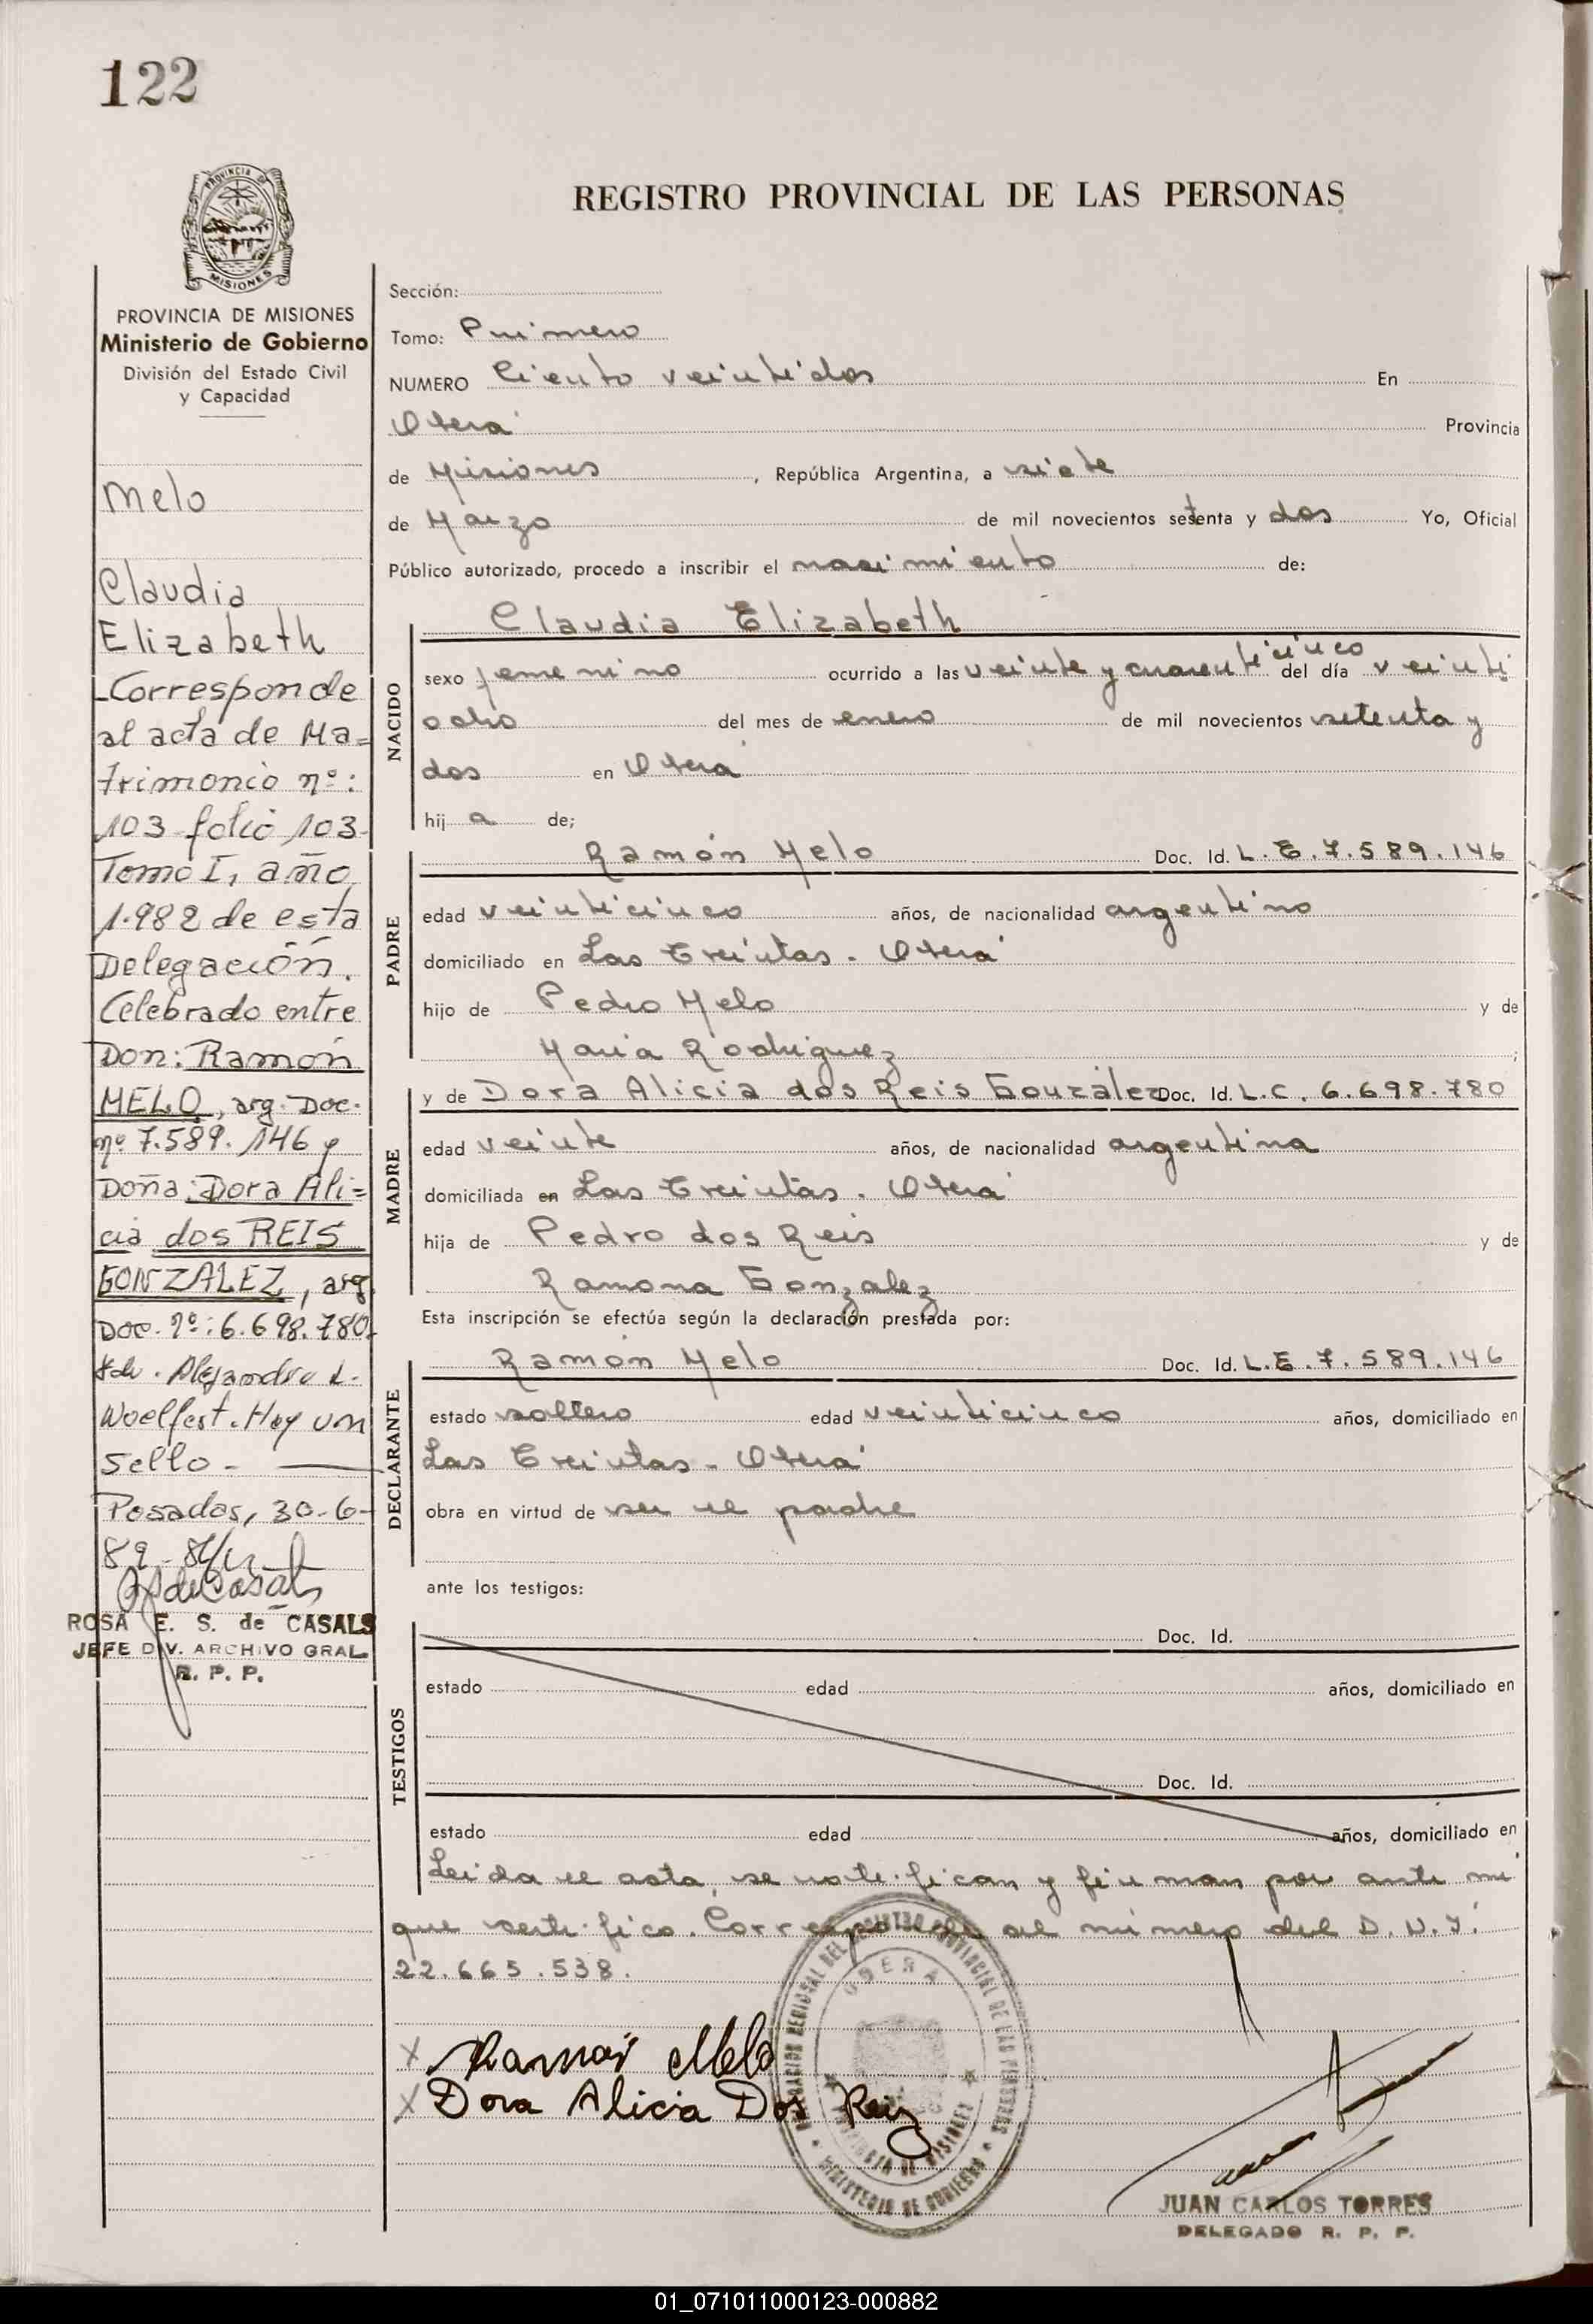 122
PROVINCIA DE
MISIONES
REGISTRO PROVINCIAL DE LAS PERSONAS
PROVINCIA DE MISIONES
Ministerio de Gobierno
División del Estado Civil
y Capacidad
Melo
Claudia
Elizabeth
Corresponde
al acta de Ma=
trimonio nº:
103 folio 103
Tomo I, año
1.982 de esta
Delegación.
Celebrado entre
Don: Ramón
MELO, arg. Doc.
nº 7.589.146 y
Doña: Dora Ali=
cia dos REIS
GONZALEZ, arg.
Doc. nº: 6.698.780.
Fdo. Alejandro L.
Woelfert. Hay un
sello.-
Posadas, 30-6-
89-
ROSA E. S. de CASALS
JEFE DIV. ARCHIVO GRAL
R. P. P.
Sección:
Tomo: Primero
NUMERO Ciento veintidos En
Oberá Provincia
de Misiones, República Argentina, a siete
de Marzo de mil novecientos setenta y dos Yo, Oficial
Público autorizado, procedo a inscribir el nacimiento de:
NACIDO
Claudia Elizabeth
sexo femenino ocurrido a las veinte y cuarenticinco del día veinti
ocho del mes de enero de mil novecientos setenta y
dos en Oberá
hij a de;
PADRE
Ramón Melo Doc. Id. L.E.7.589.146
edad veinticinco años, de nacionalidad argentino
domiciliado en Las Treintas. Oberá
hijo de Pedro Melo y de
Maria Rodriguez;
MADRE
y de Dora Alicia dos Reis González Doc. Id. L.C. 6.698.780
edad veinte años, de nacionalidad argentina
domiciliada en Las Treintas. Oberá
hija de Pedro dos Reis y de
Ramona Gonzalez
Esta inscripción se efectúa según la declaración prestada por:
DECLARANTE
Ramón Melo Doc. Id. L.E.7.589.146
estado soltero edad veinticinco años, domiciliado en
Las Treintas. Oberá
obra en virtud de ser el padre
ante los testigos:
TESTIGOS
Doc. Id.
estado edad años, domiciliado en
Doc. Id.
estado edad años, domiciliado en
Leida el acta, se notifican y firman por ante mi
que certifico. Corresponde al número del D.N.I.
22.665.538.
x Ramón Melo
x Dora Alicia Dos Reis
OBERA
MINISTERIO DE GOBIERNO
JUAN CARLOS TORRES
DELEGADO R. P. P.
01_071011000123-000882